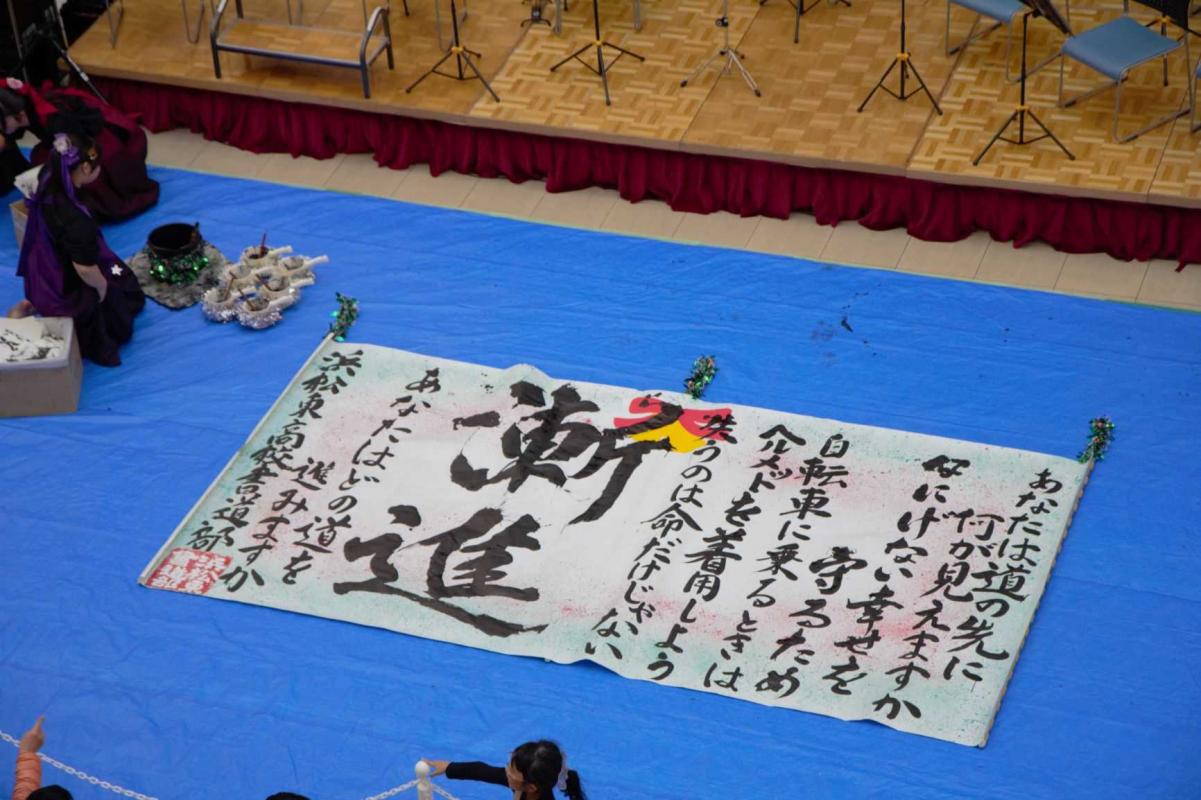 あなたは道の先に
何が見えますか
なにげない幸せを
守るため
自転車に乗るときは
ヘルメットを着用しよう
失うのは命だけじゃない
漸進
あなたはどの道を
進みますか
浜松東高校書道部